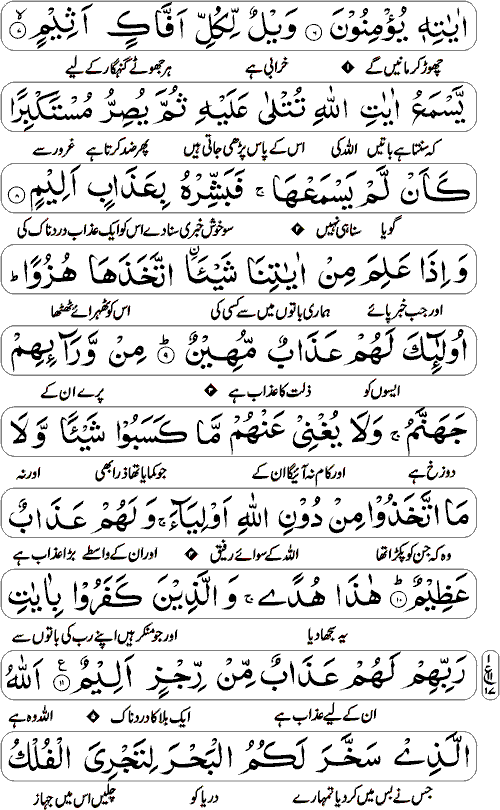 اٰيٰتِهٖ يُؤْمِنُوْنَ ۶ وَيْلٌ لِّكُلِّ اَفَّاكٍ اَثِيْمٍ ۷
چھوڑ کر مانیں گے خرابی ہے ہر جھوٹے گنہگار کے لیے
يَّسْمَعُ اٰيٰتِ اللّٰهِ تُتْلٰى عَلَيْهِ ثُمَّ يُصِرُّ مُسْتَكْبِرًا
کہ سنتا ہے باتیں اللہ کی اس کے پاس پڑھی جاتی ہیں پھر ضد کرتا ہے غرور سے
كَاَنْ لَّمْ يَسْمَعْهَا ۚ فَبَشِّرْهُ بِعَذَابٍ اَلِيْمٍ ۸
گویا سنا ہی نہیں سو خوش خبری سنا دے اس کو ایک عذاب دردناک کی
وَ اِذَا عَلِمَ مِنْ اٰيٰتِنَا شَيْئَا ۨ اتَّخَذَهَا هُزُوًا ؕ
اور جب خبر پائے ہماری باتوں میں سے کسی کی اس کو ٹھہرائے ٹھٹھا
اُولٰٓئِكَ لَهُمْ عَذَابٌ مُّهِيْنٌ ؕ ۹ مِنْ وَّرَآئِهِمْ
ایسوں کو ذلت کا عذاب ہے پرے ان کے
جَهَنَّمُ ۚ وَلَا يُغْنِىْ عَنْهُمْ مَّا كَسَبُوْا شَيْئًا وَّلَا
دوزخ ہے اور کام نہ آئیگا ان کے جو کمایا تھا ذرا بھی اور نہ
مَا اتَّخَذُوْا مِنْ دُوْنِ اللّٰهِ اَوْلِيَآءَ ۚ وَلَهُمْ عَذَابٌ
وہ کہ جن کو پکڑا تھا اللہ کے سوائے رفیق اور ان کے واسطے بڑا عذاب ہے
عَظِيْمٌ ؕ ۱۰ هٰذَا هُدًى ۚ وَ الَّذِيْنَ كَفَرُوْا بِاٰيٰتِ
یہ سجھا دیا اور جو منکر ہیں اپنے رب کی باتوں سے
رَبِّهِمْ لَهُمْ عَذَابٌ مِّنْ رِّجْزٍ اَلِيْمٌ ۱۱ ع اَللّٰهُ
ان کے لیے عذاب ہے ایک بلا کا دردناک اللہ وہ ہے
الَّذِىْ سَخَّرَ لَكُمُ الْبَحْرَ لِتَجْرِىَ الْفُلْكُ
جس نے بس میں کر دیا تمہارے دریا کو چلیں اس میں جہاز